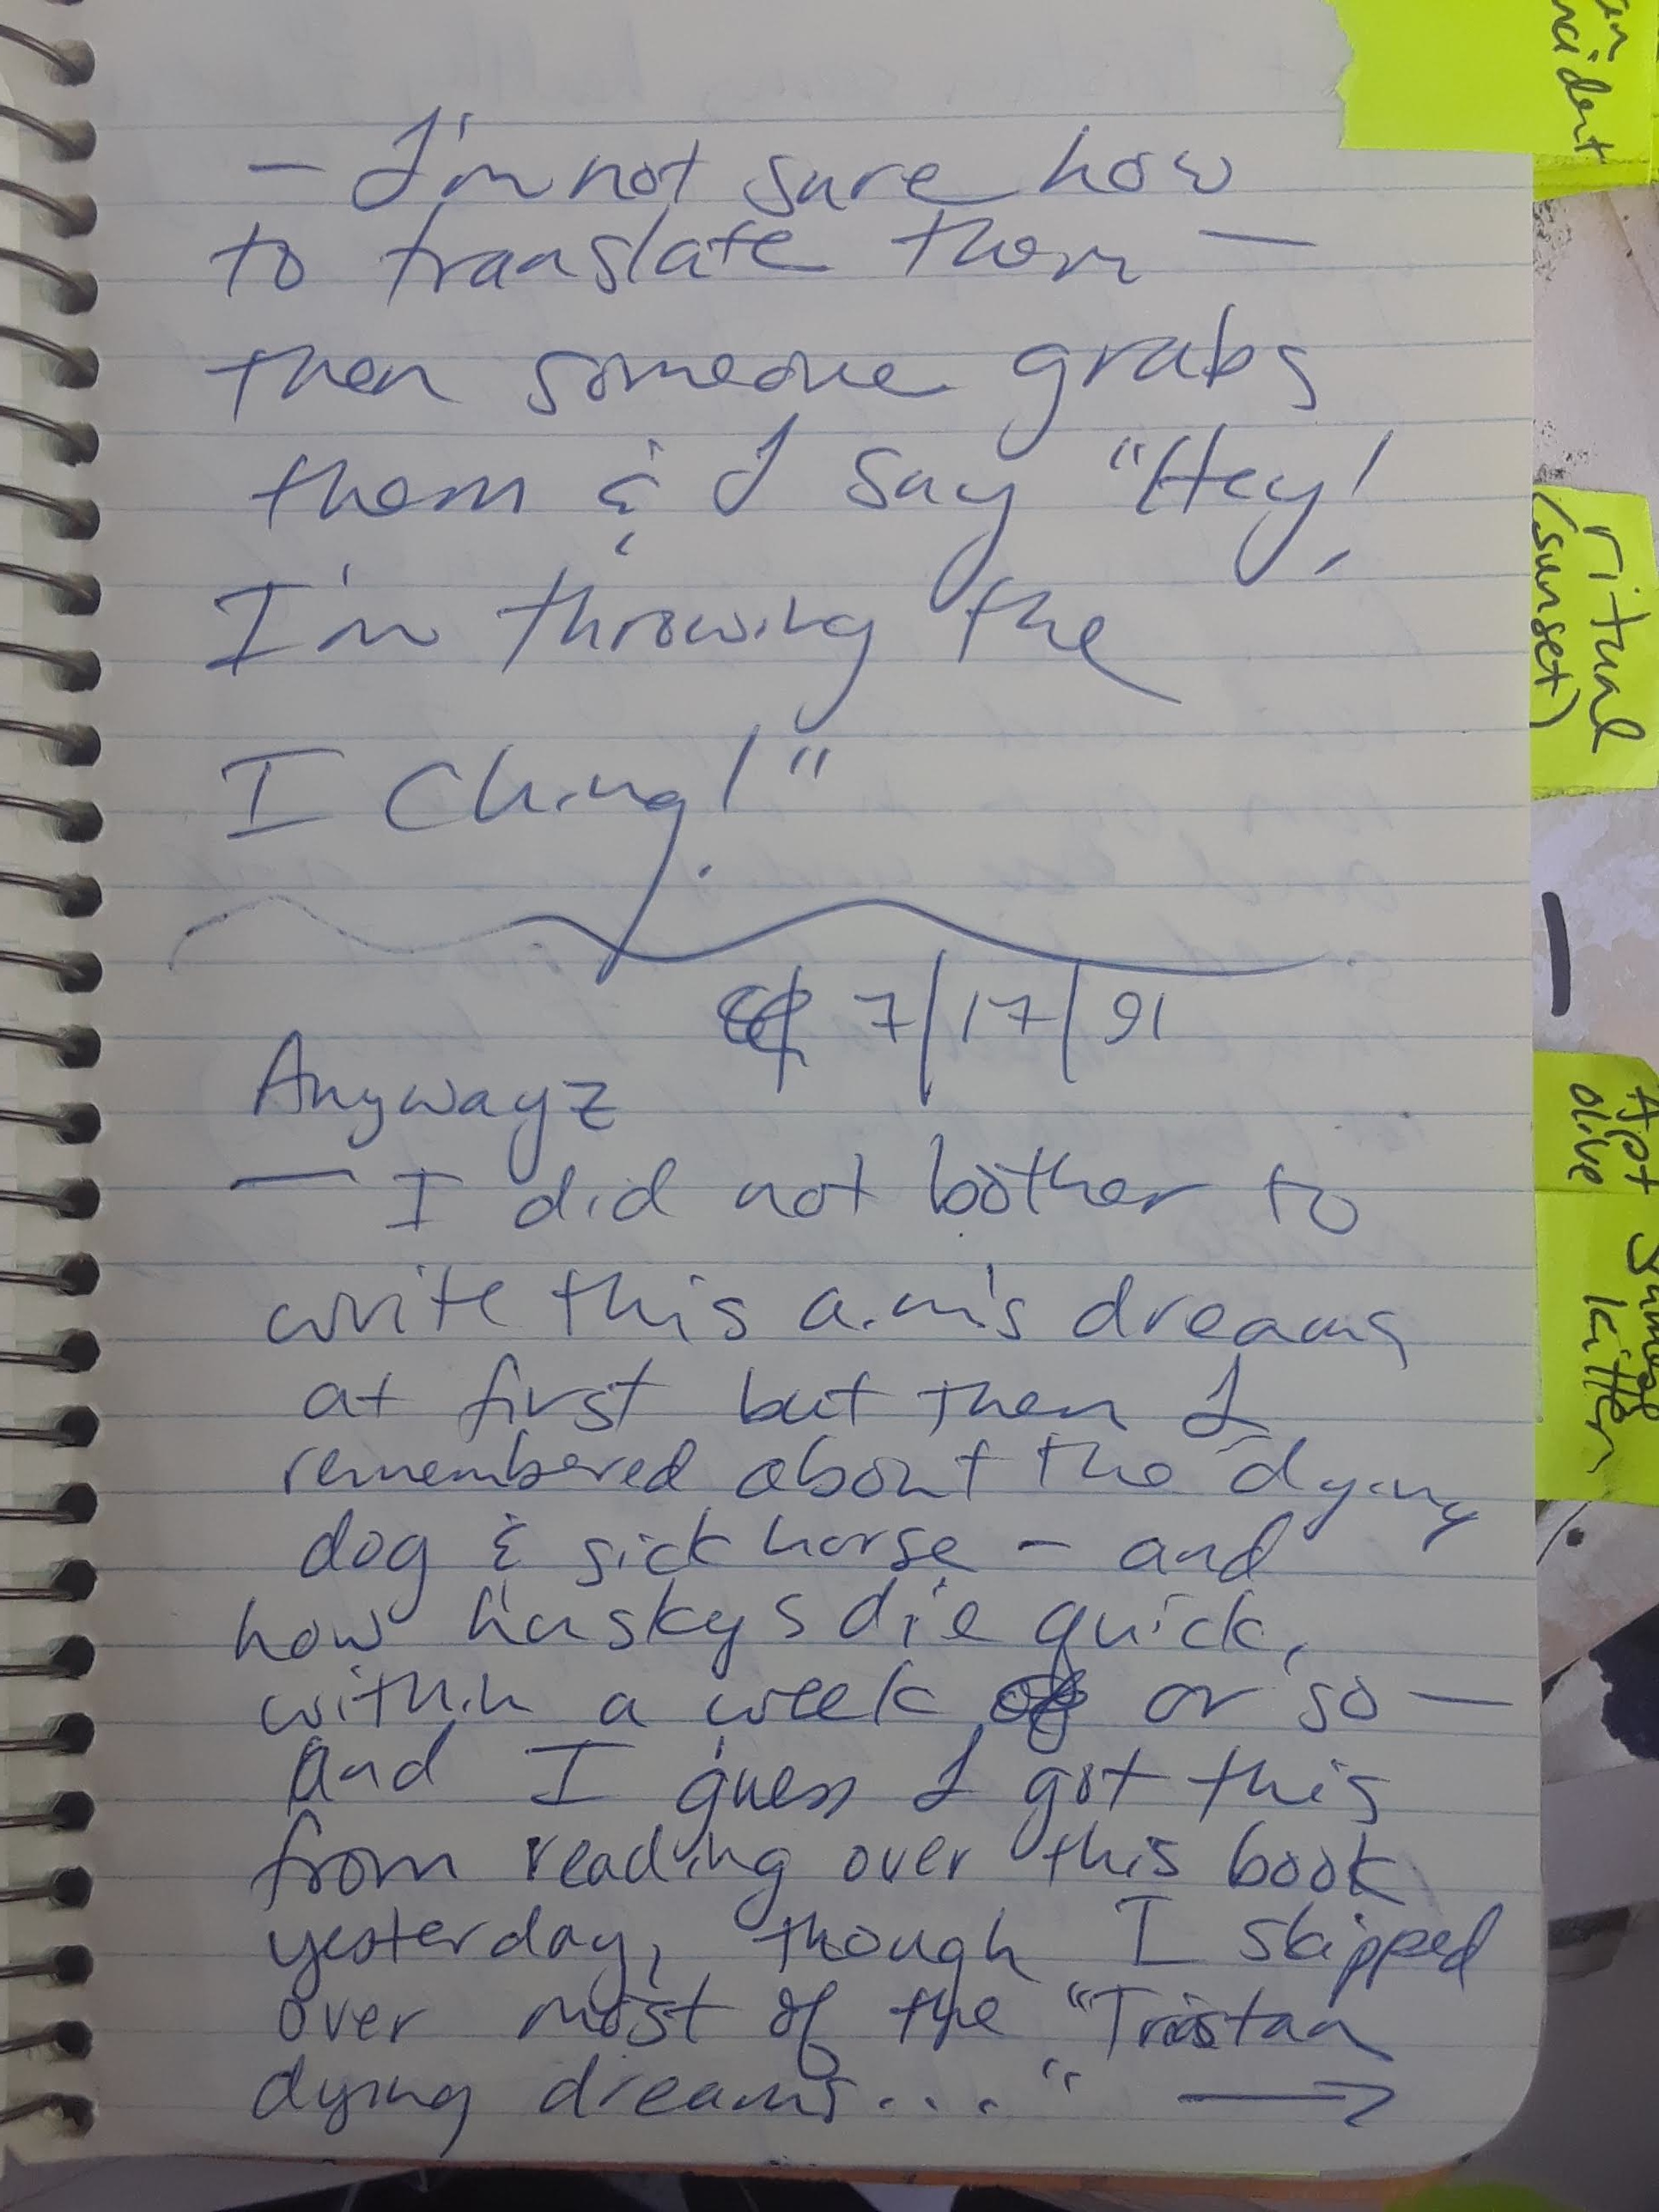 — I'm not sure how
to translate them —
then someone grabs
them & I say "Hey!
I'm throwing the
I Ching!"
7/17/91
Anywayz
— I did not bother to
write this a.m.'s dreams
at first but then I
remembered about the dying
dog & sick horse — and
how huskys die quick,
within a week or so —
and I guess I got this
from reading over this book
yesterday, though I skipped
over most of the "Tristan
dying dreams..." →
ncident
ritual
(sunset)
Appt
olive
kitten